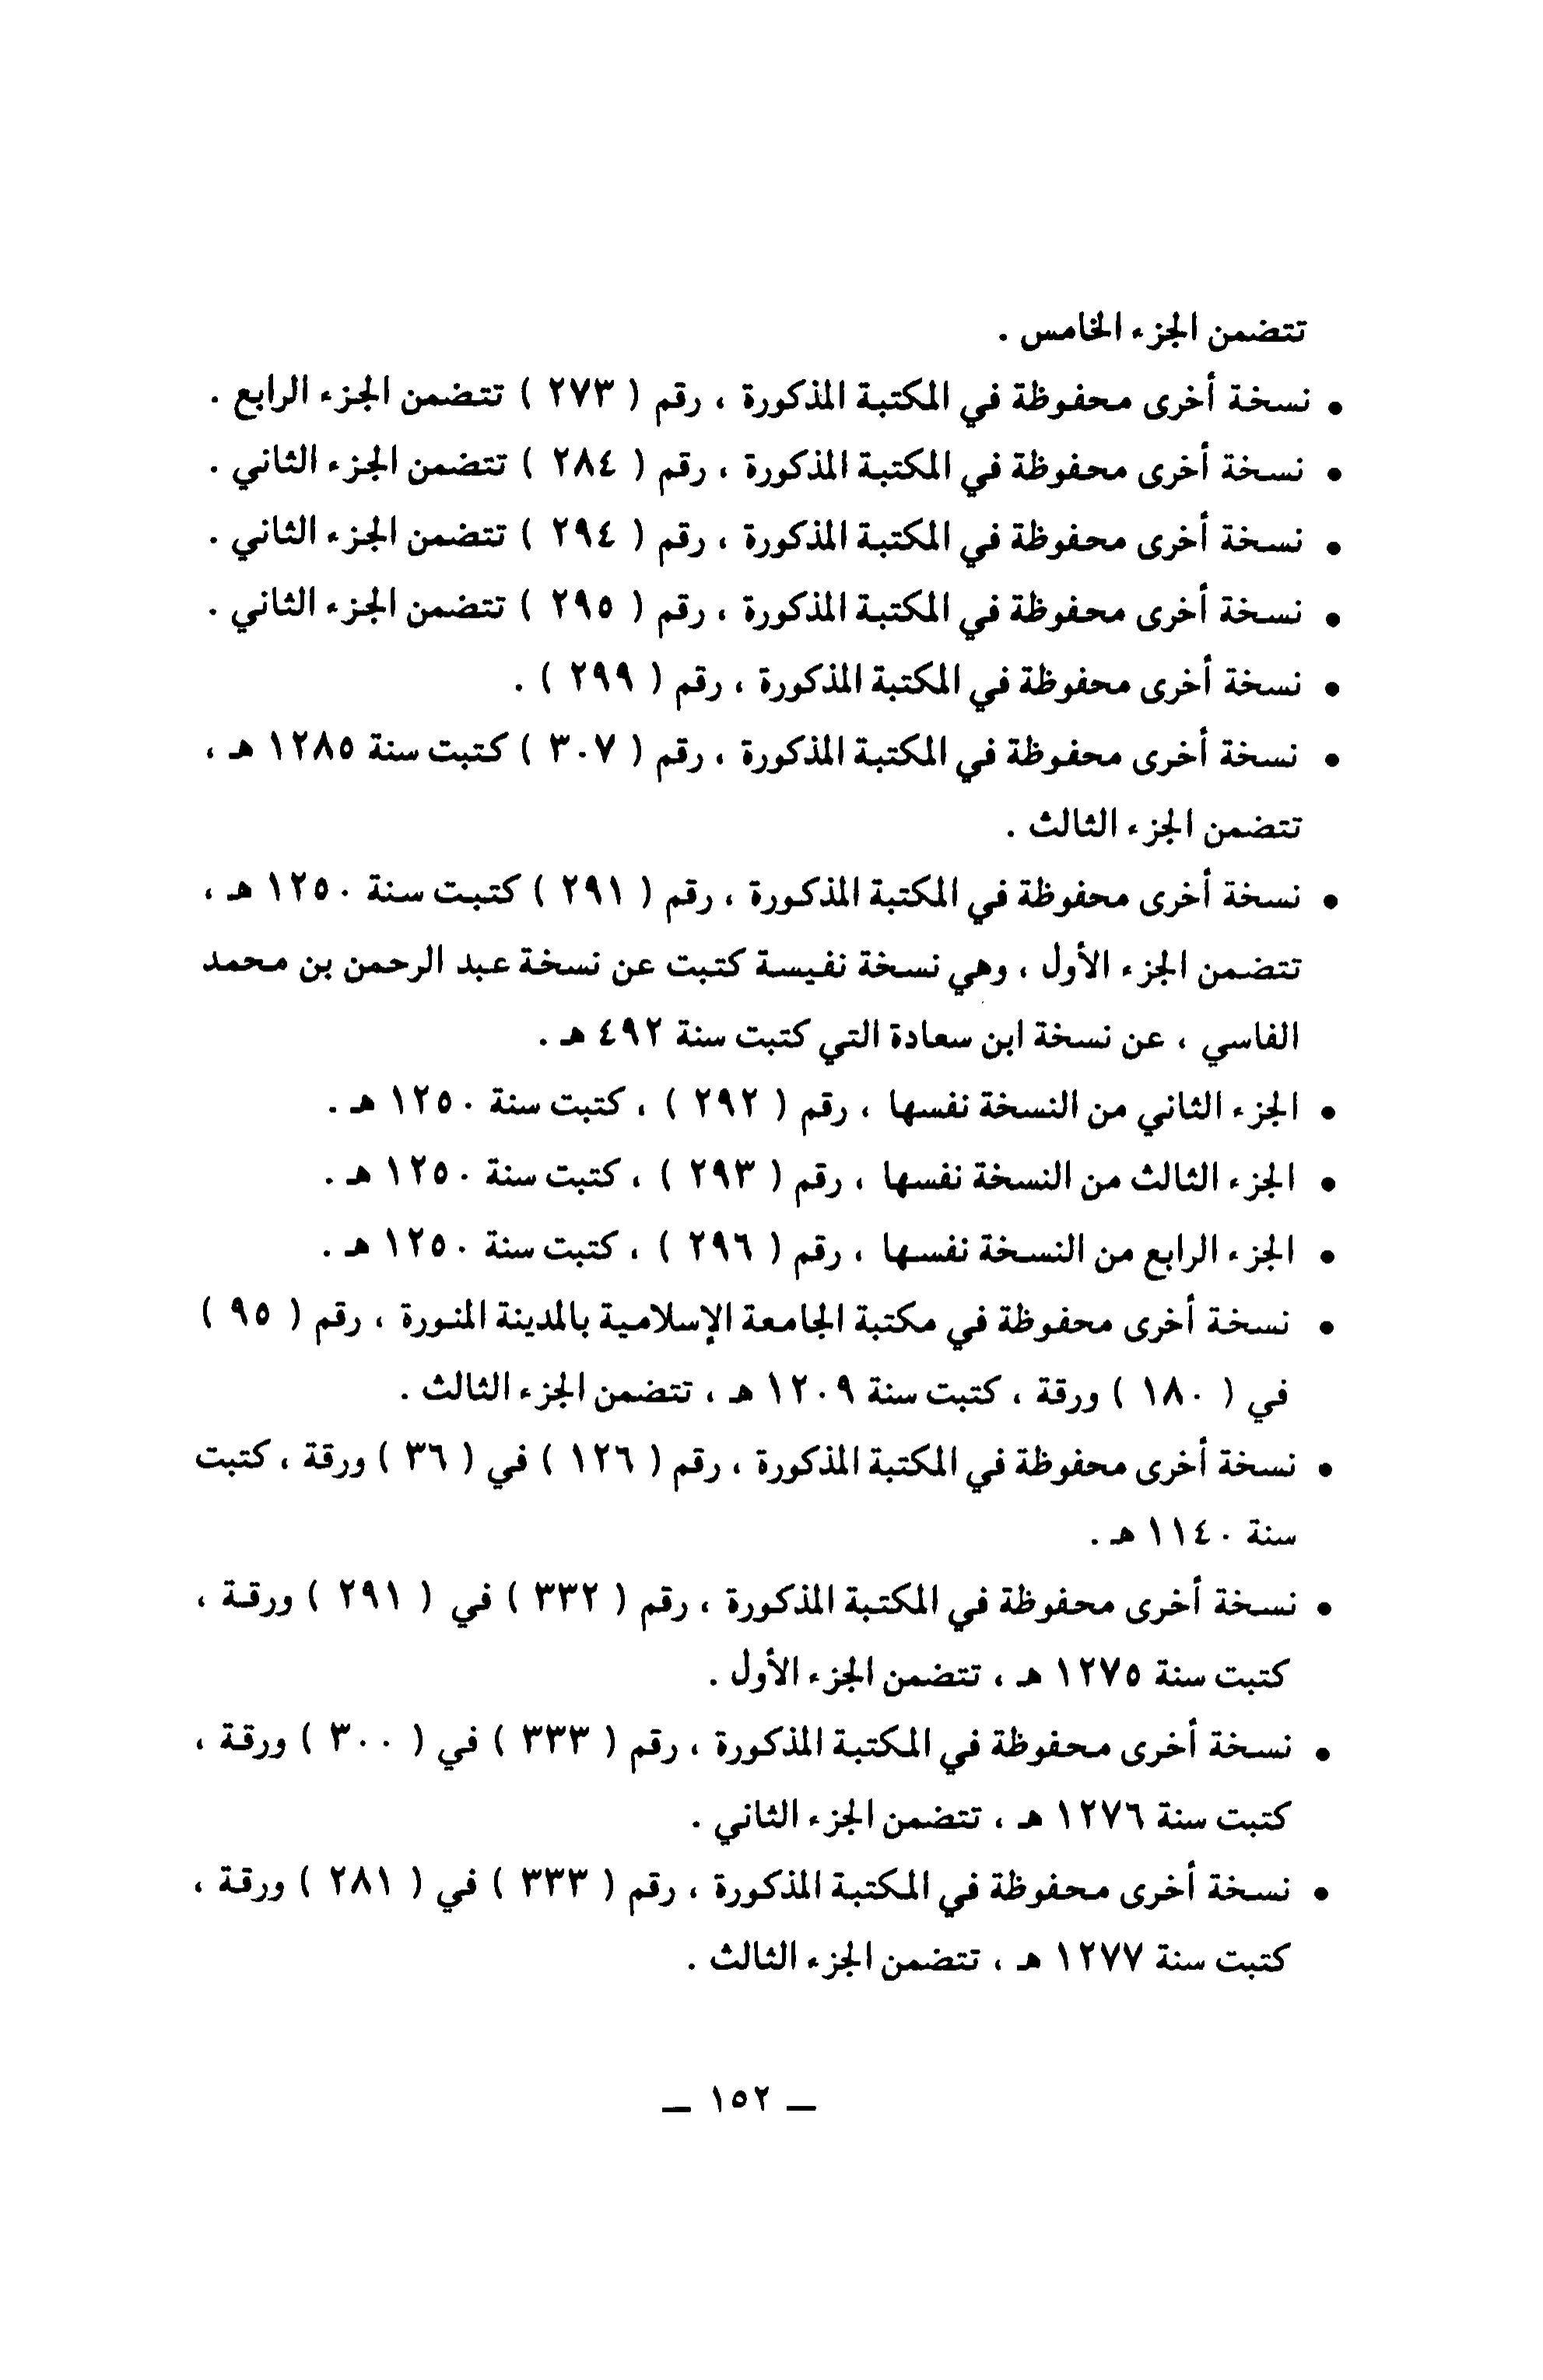 تتضمن الجزء الخامس .
• نسخة أخرى محفوظة في المكتبة المذكورة ، رقم ( ٢٧٣ ) تتضمن الجزء الرابع .
• نسخة أخرى محفوظة في المكتبة المذكورة ، رقم ( ٢٨٤ ) تتضمن الجزء الثاني .
• نسخة أخرى محفوظة في المكتبة المذكورة ، رقم ( ٢٩٤ ) تتضمن الجزء الثاني .
• نسخة أخرى محفوظة في المكتبة المذكورة ، رقم ( ٢٩٥ ) تتضمن الجزء الثاني .
• نسخة أخرى محفوظة في المكتبة المذكورة ، رقم ( ٢٩٩ ) .
• نسخة أخرى محفوظة في المكتبة المذكورة ، رقم ( ٣٠٧ ) كتبت سنة ١٢٨٥ هـ ،
تتضمن الجزء الثالث .
• نسخة أخرى محفوظة في المكتبة المذكورة ، رقم ( ٢٩١ ) كتبت سنة ١٢٥٠ هـ ،
تتضمن الجزء الأول ، وهي نسخة نفيسة كتبت عن نسخة عبد الرحمن بن محمد
الفاسي ، عن نسخة ابن سعادة التي كتبت سنة ٤٩٢ هـ .
• الجزء الثاني من النسخة نفسها ، رقم ( ٢٩٢ ) ، كتبت سنة ١٢٥٠ هـ .
• الجزء الثالث من النسخة نفسها ، رقم ( ٢٩٣ ) ، كتبت سنة ١٢٥٠ هـ .
• الجزء الرابع من النسخة نفسها ، رقم ( ٢٩٦ ) ، كتبت سنة ١٢٥٠ هـ .
• نسخة أخرى محفوظة في مكتبة الجامعة الإسلامية بالمدينة المنورة ، رقم ( ٩٥ )
في ( ١٨٠ ) ورقة ، كتبت سنة ١٢٠٩ هـ ، تتضمن الجزء الثالث .
• نسخة أخرى محفوظة في المكتبة المذكورة ، رقم ( ١٢٦ ) في ( ٣٦ ) ورقة ، كتبت
سنة ١١٤٠ هـ .
• نسخة أخرى محفوظة في المكتبة المذكورة ، رقم ( ٣٣٢ ) في ( ٢٩١ ) ورقة ،
كتبت سنة ١٢٧٥ هـ ، تتضمن الجزء الأول .
• نسخة أخرى محفوظة في المكتبة المذكورة ، رقم ( ٣٣٣ ) في ( ٣٠٠ ) ورقة ،
كتبت سنة ١٢٧٦ هـ ، تتضمن الجزء الثاني .
• نسخة أخرى محفوظة في المكتبة المذكورة ، رقم ( ٣٣٣ ) في ( ٢٨١ ) ورقة ،
كتبت سنة ١٢٧٧ هـ ، تتضمن الجزء الثالث .
ــ ١٥٢ ــ